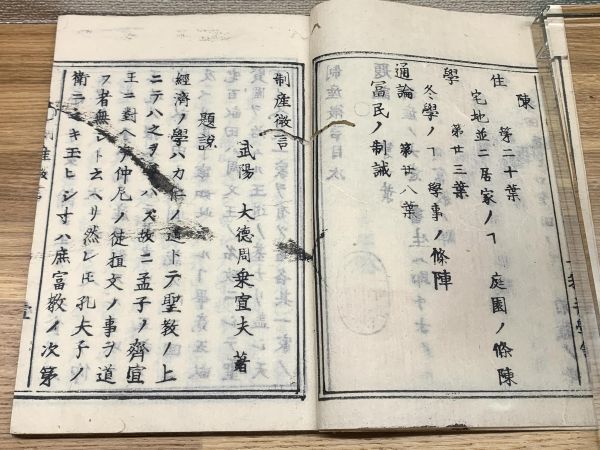 陳
住 第二十葉
宅地並ニ居家ノヿ 庭園ノ條陳
學 第廿三葉
冬學ノヿ 學事ノ條陣
通論 第廿八葉
冨民ノ制誡
制産微言
武陽 大德周乘宜夫 著
題諒
經濟ノ學ハ ノ道トテ聖教ノ上
ニテハ之ヲ ハズ故ニ孟子ノ齊宣
王ニ對ヘテ仲尼ノ徒桓文ノ事ヲ道
フ者無 ト云ヘリ然レ𪜈孔夫子ノ
衛ニ キ玉ヒシ寸ハ庶富教ノ次第